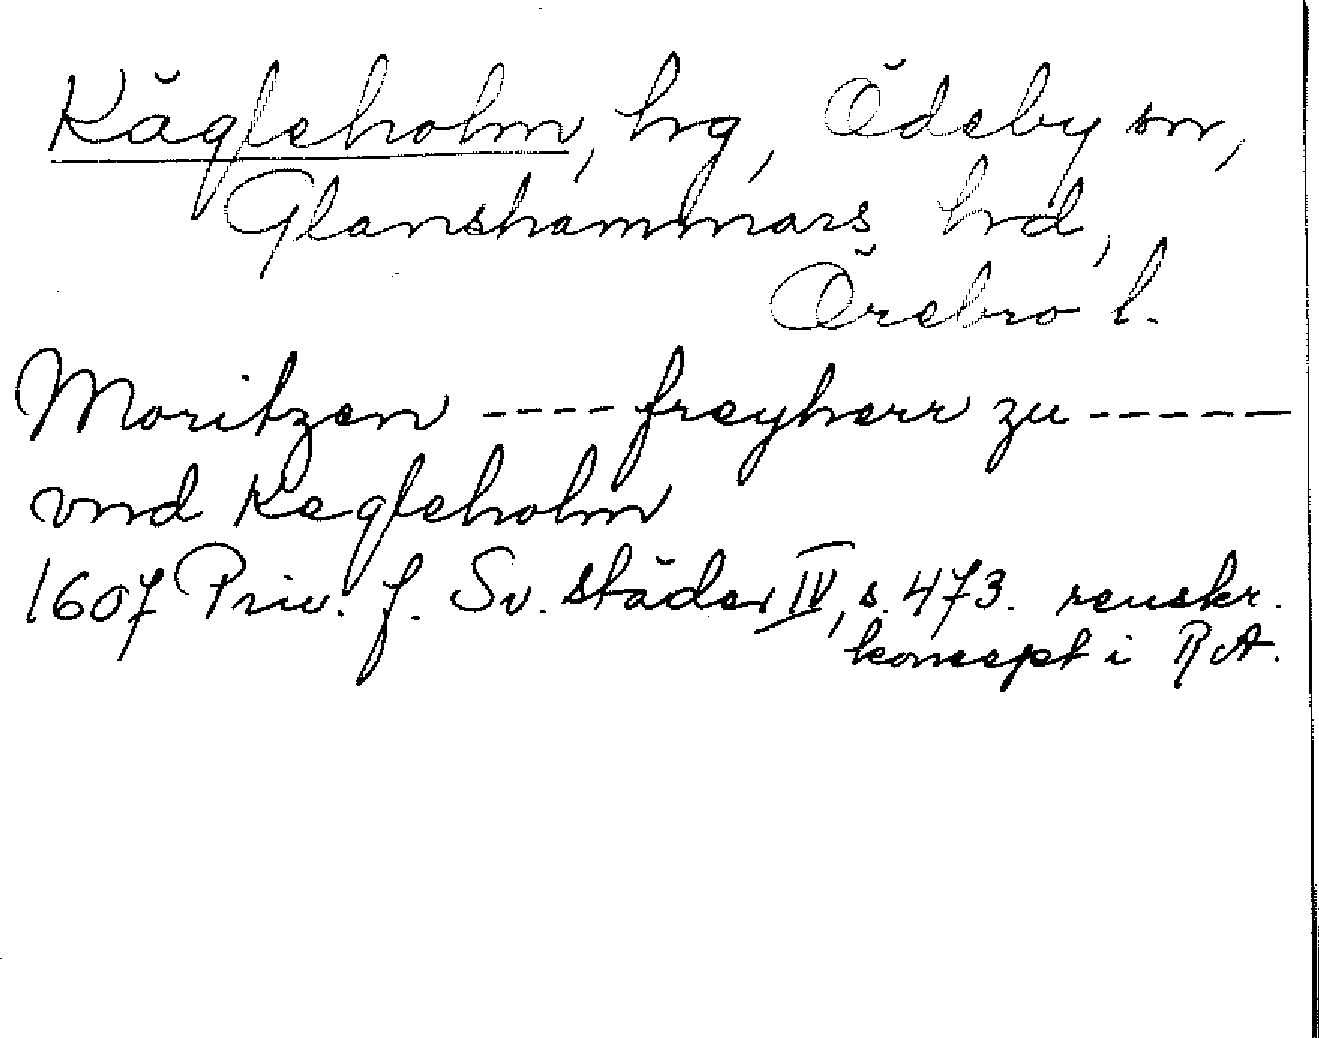 Kägleholm, hrg, Ödeby sn,
Glanshammars hrd,
Örebro l.
Moritzen ---- freyherr zu -----
vnd Kegleholm
1607 Priv. f. Sv. städer IV, s. 473. renskr.
koncept i RA.